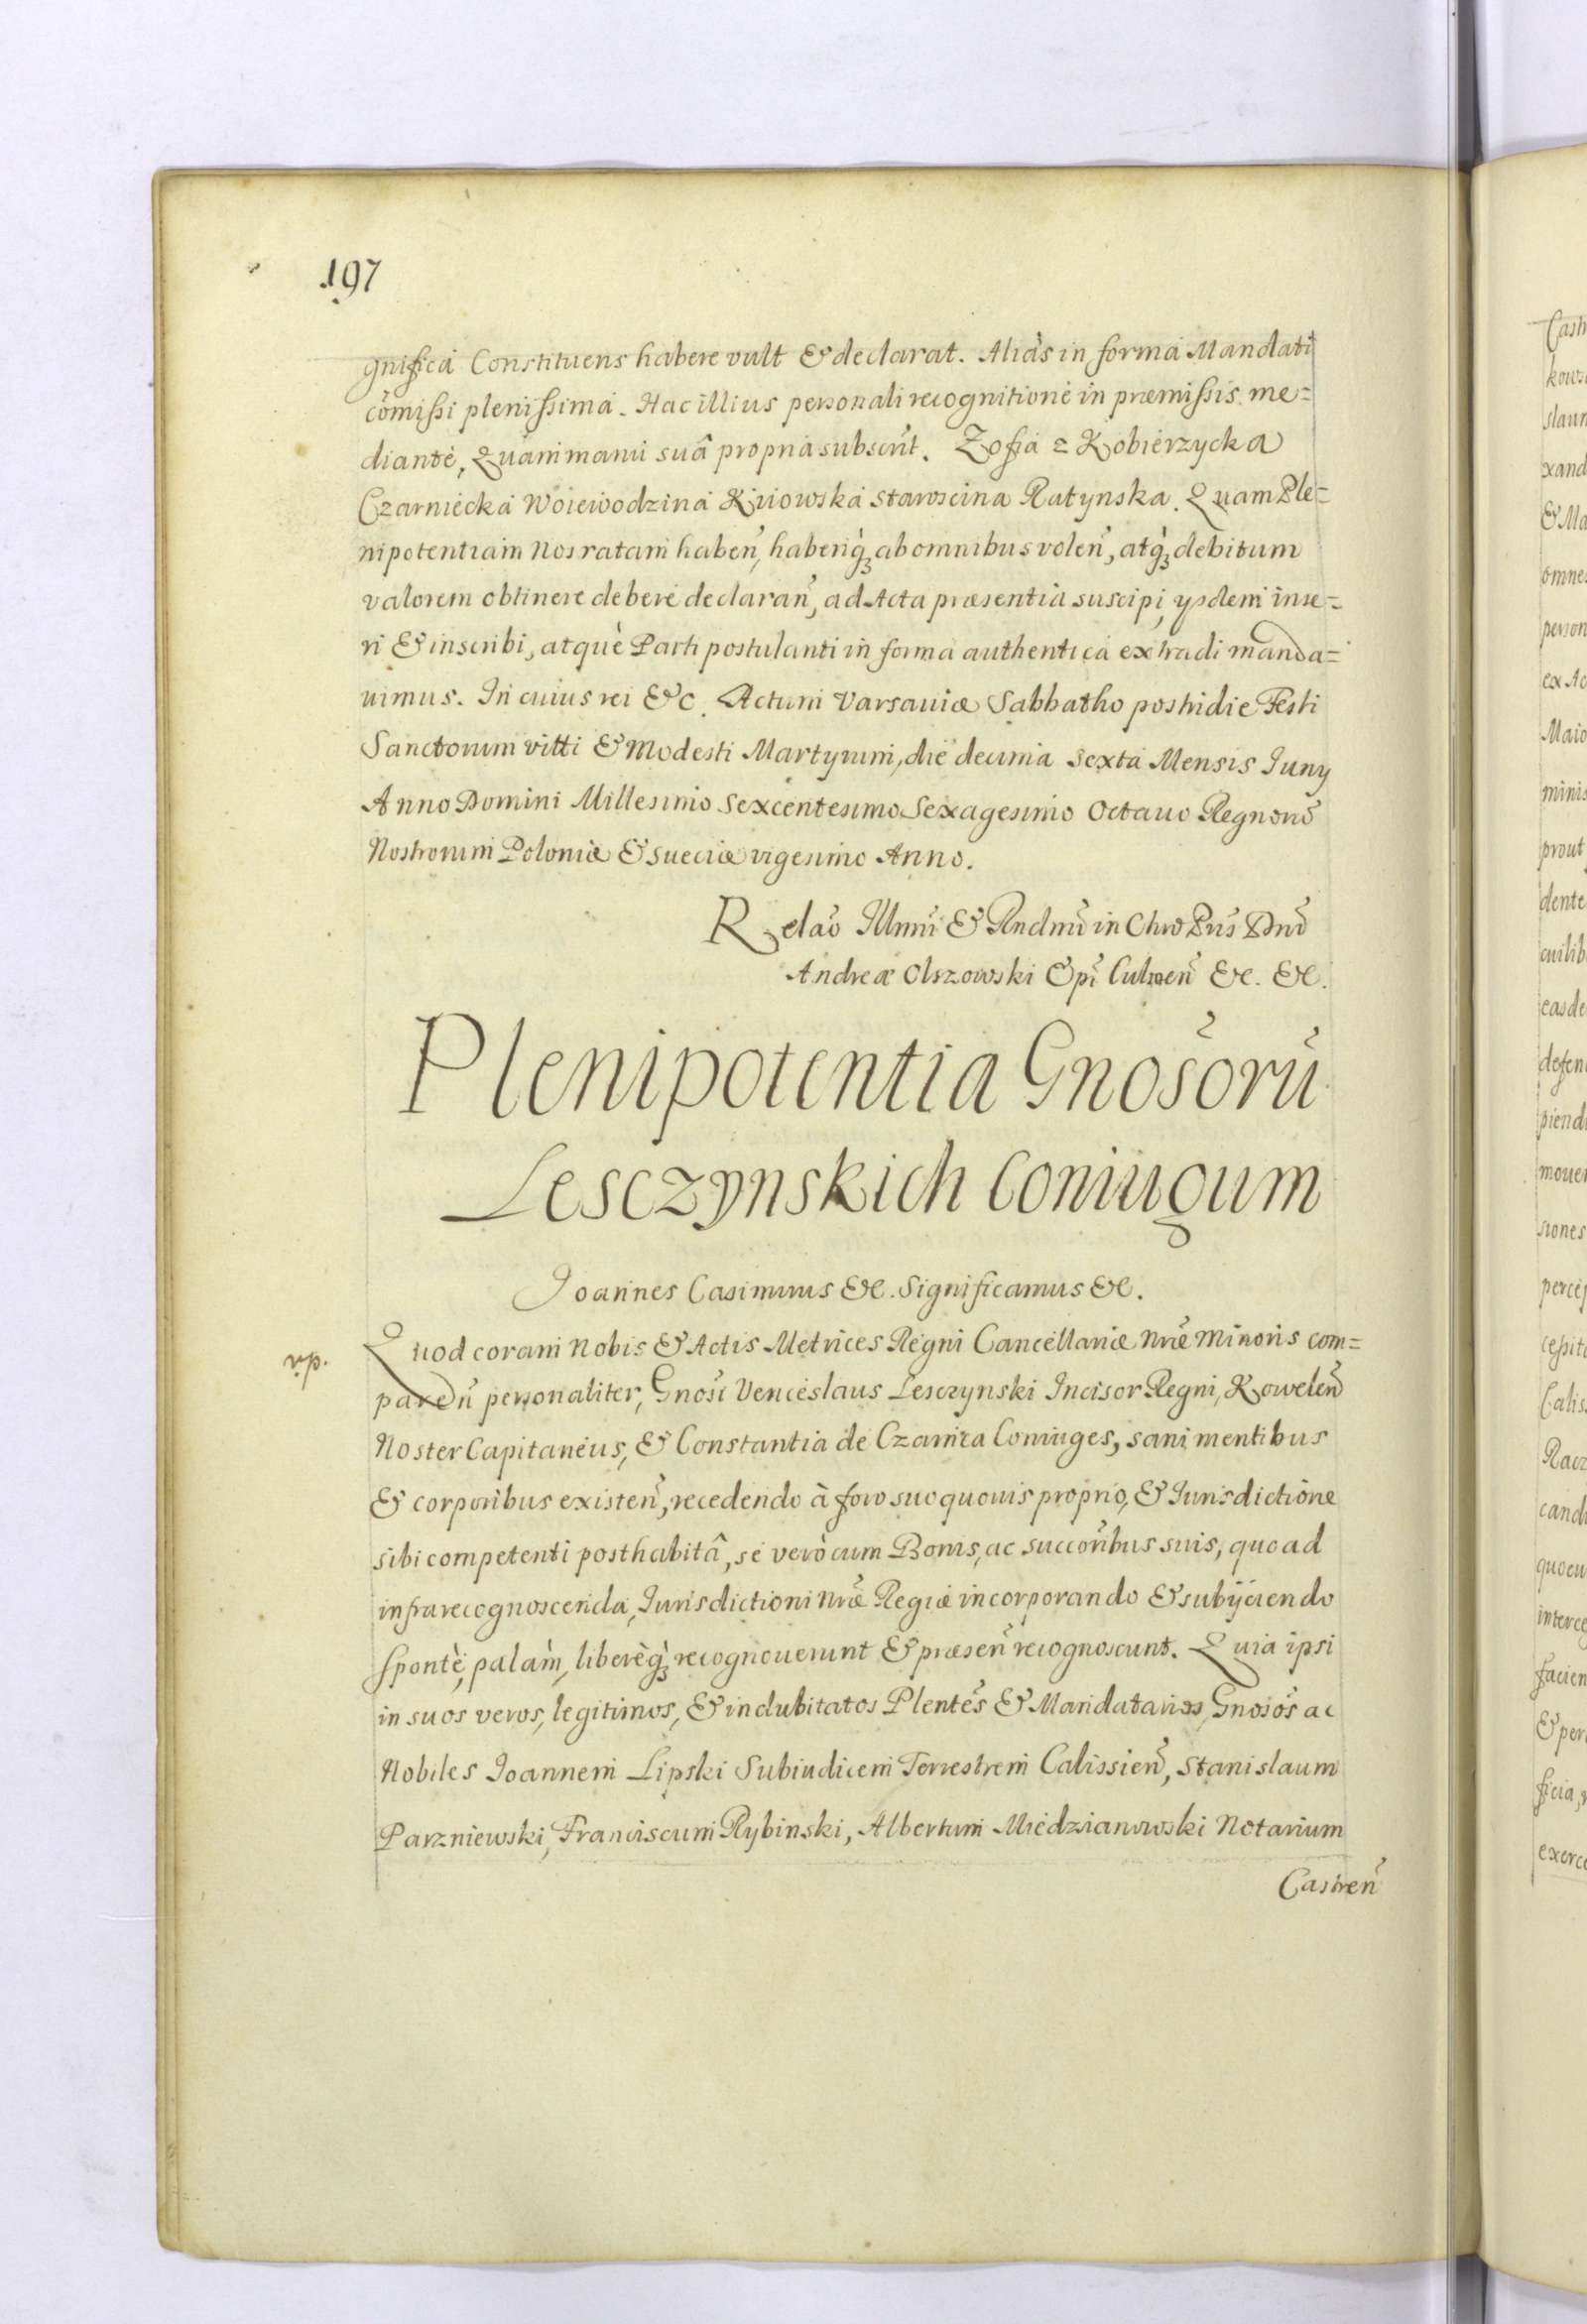 197
gnifica Constituens habere vult & declarat. Aliàs in forma Mandati
cõmissi plenissima. Hac illius personali recognitione in præmissis me=
diante, Quam manu suâ propria subscrit. Zofia z Kobierzycka
Czarniecka Woiewodzina Kiiowska Staroscina Ratynska. Quam Ple=
nipotentiam Nos ratam haben̄, haberiq̀ꝫ ab omnibus volen̄, atq̀ꝫ debitum
valorem obtinere debere declaran̄, ad Acta præsentia suscipi, ysdem inse=
ri & inscribi, atquè Parti postulanti in forma authentica extradi manda=
uimus. In cuius rei &c. Actum Varsauiæ Sabbatho postridie Festi
Sanctorum Vitti & Modesti Martyrum, die decima sexta Mensis Iuny
Anno Domini Millesimo Sexcentesimo Sexagesimo Octauo Regnorũ
Nostrorum Poloniæ & Sueciæ vigesimo Anno.
Relaõ Illmi & Rndmi in Chrõ Pris Dni
Andreæ Olszowski Epi Culmen̄ &c. &c.
Plenipotentia Gnosorũ
Lesczynskich Coniugum
Ioannes Casimirus &c. Significamus &c.
vp.
Quod coram Nobis & Actis Metrices Regni Cancellariæ Nræ Minoris com=
paren̄ personaliter, Gnosi Venceslaus Lesczynski Incisor Regni, Kowelen̄
Noster Capitaneus, & Constantia de Czarnca Coniuges, sani mentibus
& corporibus existen̄, recedendo à foro suo quouis proprio, & Iurisdictione
sibi competenti posthabitâ, se verò cum Bonis, ac succoribus suis, quoad
infrarecognoscenda, Iurisdictioni Nræ Regiæ incorporando & subijciendo
spontè, palàm, liberèq̀ꝫ recognouerunt & præsen̄ recognoscunt. Quia ipsi
in suos veros, legitimos, & indubitatos Plentes & Mandatarios, Gnosos ac
Nobiles Ioannem Lipski Subiudicem Terrestrem Calissien̄, Stanislaum
Parzniewski, Franciscum Rybinski, Albertum Miedzianowski Notarium
Castren̄